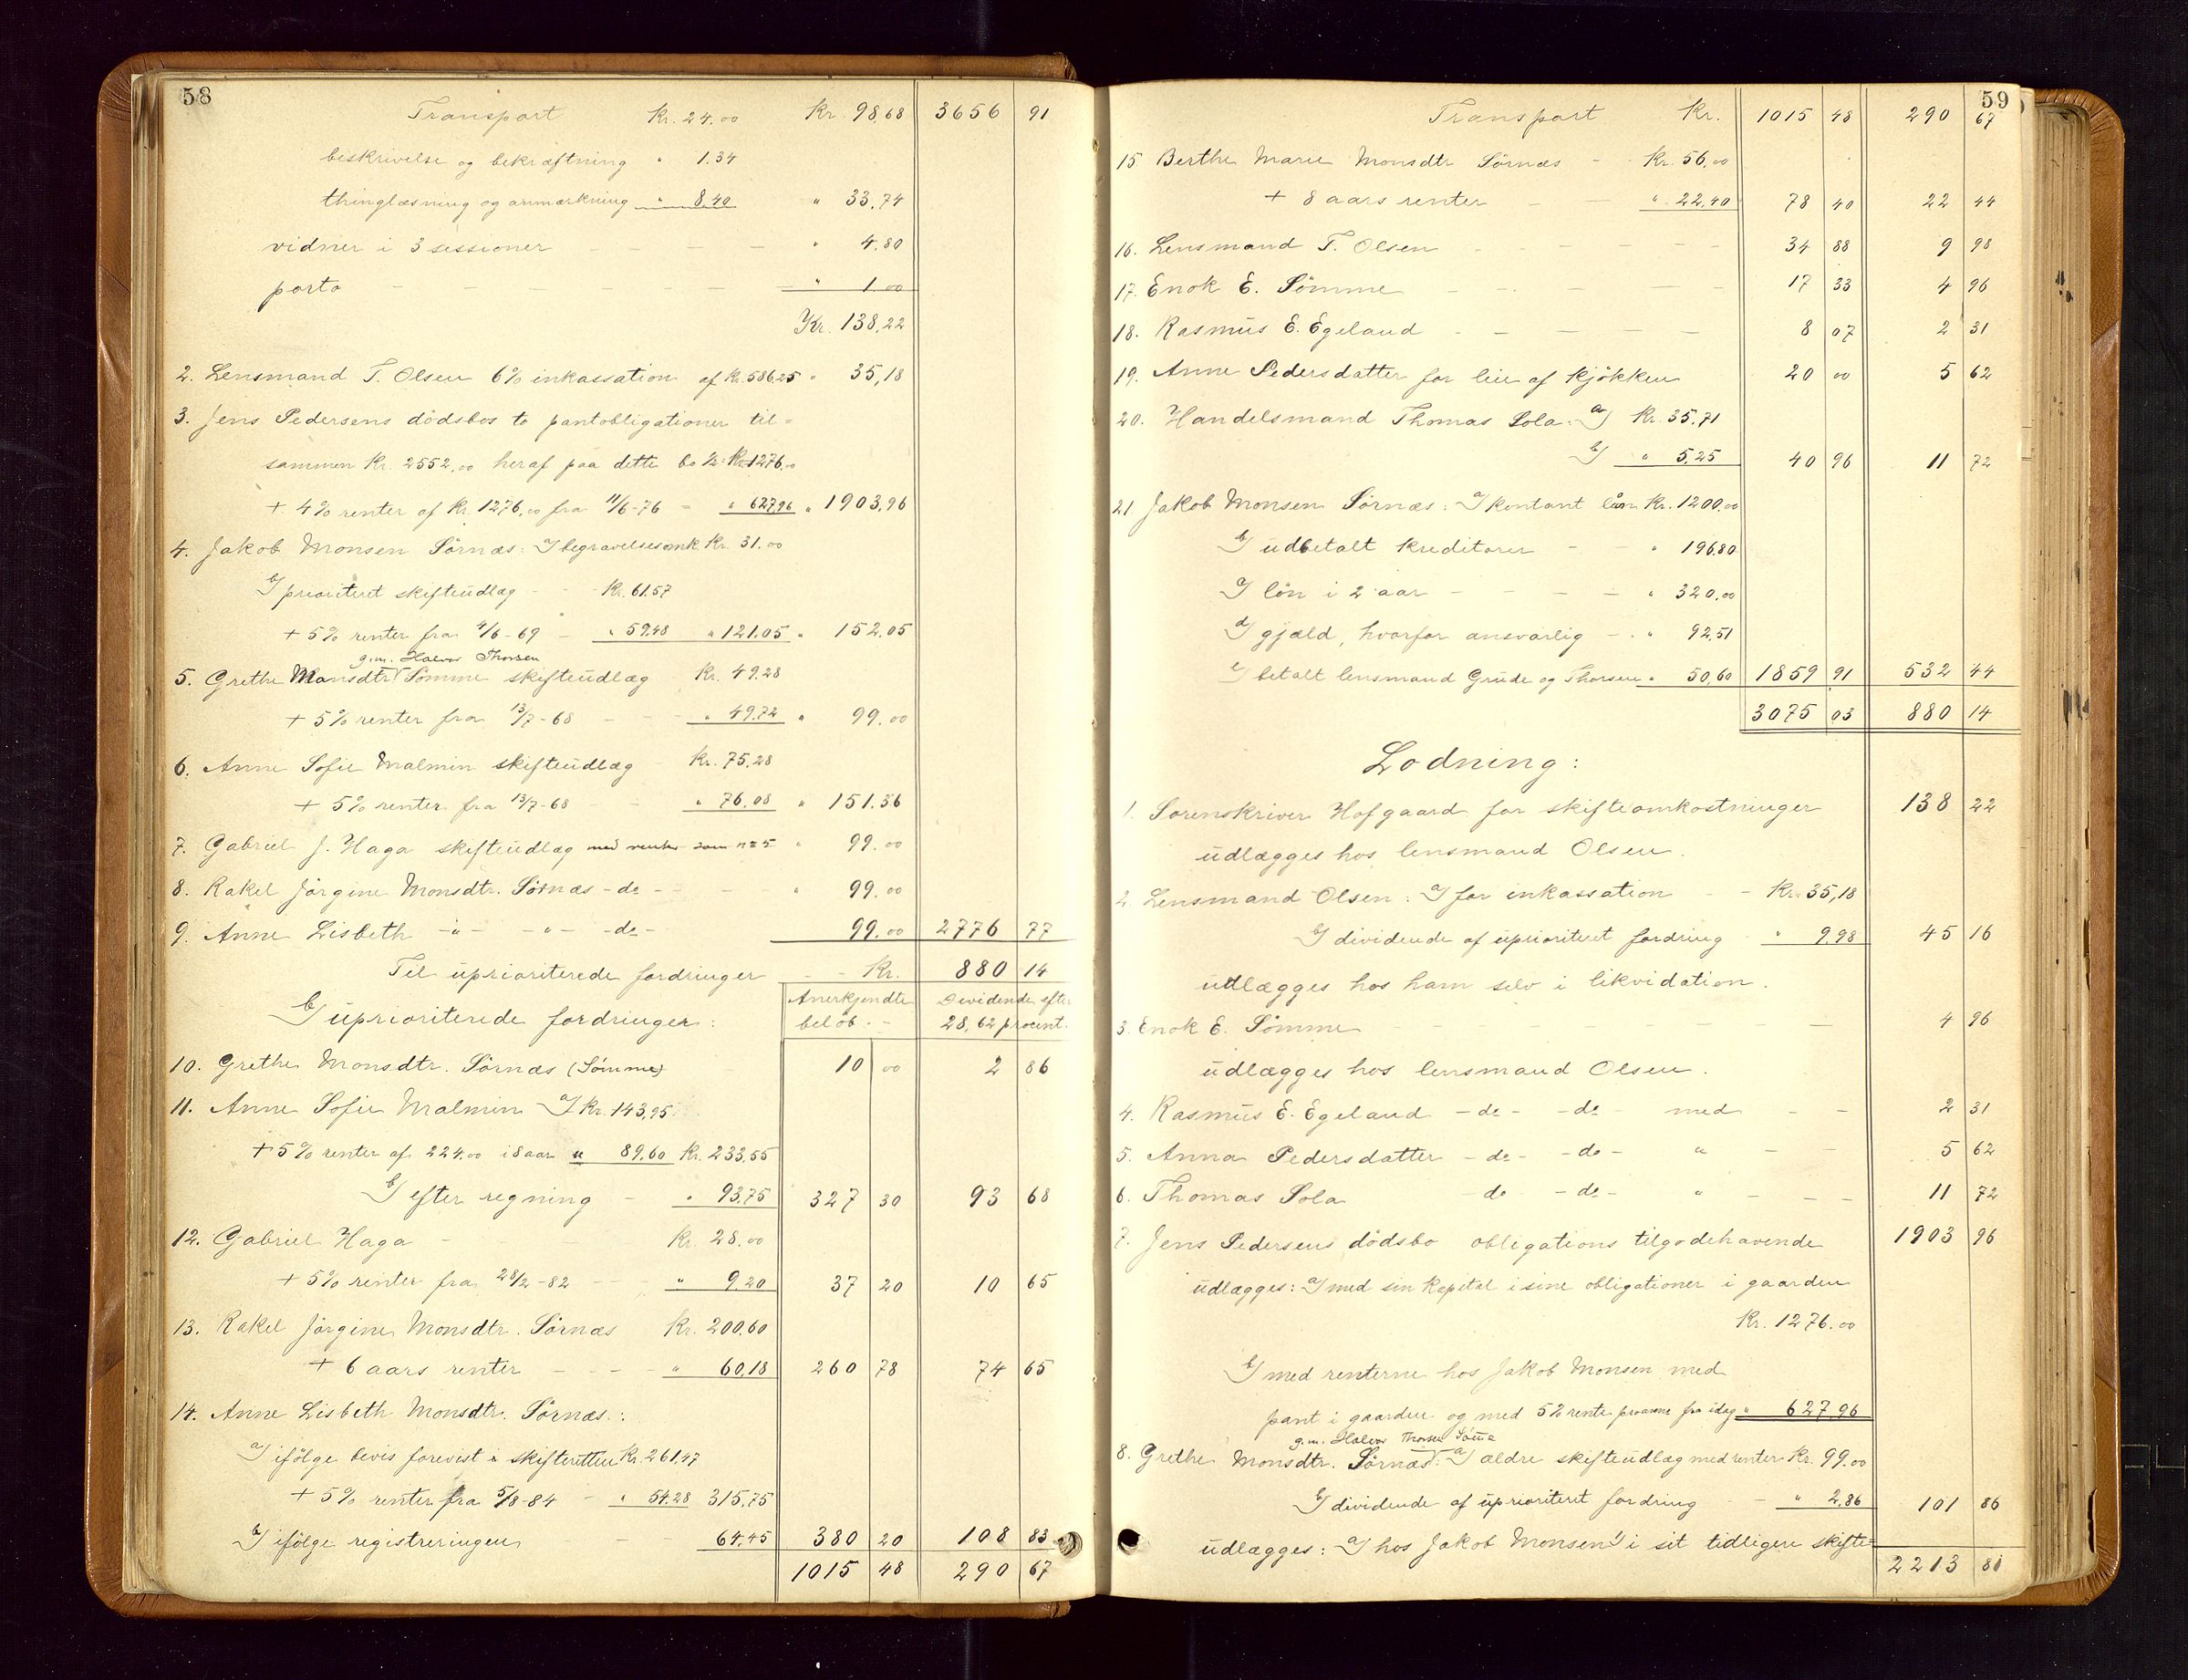 58
Transport Kr. 24.00 Kr. 98,68 3656 91
beskrivelse og bekræftning " 1.34
thinglæsning og anmærkning " 8,40 " 33,74
vidner i 3 sessioner " 4.80
porto " 1.00
Kr. 138,22
2. Lensmand T. Olsen 6% inkassation af Kr. 586.25 " 35,18
3. Jens Pedersens dödsbos to pantobligationer til=
sammen Kr. 2552,00 heraf paa dette bo ½ Kr. 1276,00
+ 4% renter af Kr. 1276,00 fra 11/6-76 - " 627,96 " 1903,96
4. Jakob Monsen Sörnæs: a/ begravelsesomk Kr. 31.00
b/ prioriteret skifteudlæg - Kr. 61.57
+ 5% renter fra 4/6-69 - " 59,48 " 121.05 " 152.05
g.m. Halvor Thorsen
5. Grethe Monsdtr Sömme skifteudlæg Kr. 49.28
+ 5% renter fra 13/7-68 - " 49,72 " 99.00
6. Anne Sofie Malmin skifteudlæg Kr. 75.28
+ 5% renter fra 13/7-68 - " 76,08 " 151.36
7. Gabriel J. Haga skifteudlæg med renter som n= 5 " 99.00
8. Rakel Jörgine Monsdtr. Sörnæs - do - " 99.00
9. Anne Lisbeth -"- -"- -do- 99.00 2776 77
Til uprioriterede fordringer - - Kr. 880 14
b/ uprioriterede fordringer: Anerkjendte belöb. - Dividende efter 28,62 procent.
10. Grethe Monsdtr. Sörnæs (Sömme) 10 00 2 86
11. Anne Sofie Malmin a/ Kr. 143,95
+ 5% renter af 224.00 i 8 aar " 89,60 Kr. 233,55
b/ efter regning - " 93,75 327 30 93 68
12. Gabriel Haga - Kr. 28.00
+ 5% renter fra 28/2-82 - " 9,20 37 20 10 65
13. Rakel Jörgine Monsdtr. Sörnæs Kr. 200,60
+ 6 aars renter - " 60,18 260 78 74 65
14. Anne Lisbeth Monsdtr. Sörnæs:
a/ ifölge bevis forevist i skifteretten Kr. 261,47
+ 5% renter fra 5/8-84 - " 54.28 315,75
b/ ifölge registreringen - 64,45 380 20 108 83
1015 48 290 67
59
Transport Kr. 1015 48 290 67
15 Berthe Marie Monsdtr Sörnæs - Kr. 56,00
+ 8 aars renter - " 22,40 78 40 22 44
16. Lensmand T. Olsen - 34 88 9 98
17. Enok E. Sömme - 17 33 4 96
18. Rasmus E. Egeland - 8 07 2 31
19. Anne Pedersdatter for leie af kjökken 20 00 5 62
20. Handelsmand Thomas Sola: a/ Kr. 35,71
b/ " 5,25 40 96 11 72
21 Jakob Monsen Sörnæs: a/ kontant lån Kr. 1200,00
b/ udbetalt kreditorer - " 196,80
c/ lön i 2 aar - " 320,00
d/ gjæld, hvorfor ansvarlig - " 92,51
e/ betalt lensmand Grude og Thorsen " 50,60 1859 91 532 44
3075 03 880 14
Lodning:
1. Sorenskriver Hofgaard for skifteomkostninger 138 22
udlægges hos lensmand Olsen.
2. Lensmand Olsen: a/ for inkassation - Kr. 35,18
b/ dividende af uprioriteret fordring " 9,98 45 16
udlægges hos ham selv i likvidation.
3. Enok E. Sömme - 4 96
udlægges hos lensmand Olsen.
4. Rasmus E. Egeland - do - - do - med - - 2 31
5. Anna Pedersdatter - do - - do - " - - 5 62
6. Thomas Sola - do - do - " - - 11 72
7. Jens Pedersens dödsbo obligations tilgodehavende 1903 96
udlægges: a/ med sin kapital i sine obligationer i gaarden
Kr. 1276.00
b/ med renterne hos Jakob Monsen med
pant i gaarden og med 5% rente pro anno fra idag " 627,96
g.m. Halvor Thorsen Sömme
8. Grethe Monsdtr. Sörnæs: a/ ældre skifteudlæg med renter Kr. 99.00
b/ dividende af uprioriteret fordring - " 2,86 101 86
udlægges: a/ hos Jakob Monsen 1/ i sit tidligere skifte=
2213 81